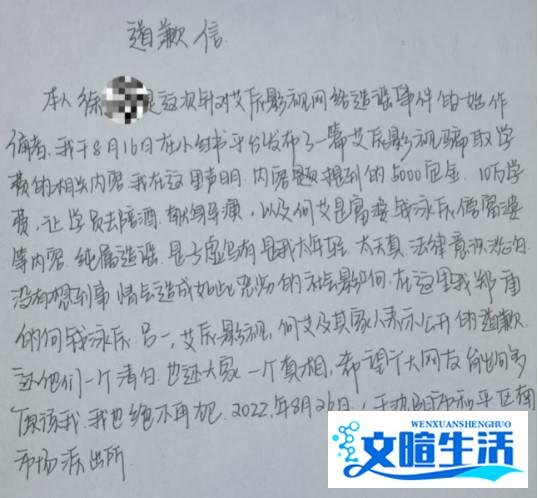 道歉信
本人徐 是这次针对艾辰影视网络造谣事件的始作
俑者,我于8月16日在小红书平台发布了一篇艾辰影视骗取学
费的相关内容.我在这里声明,内容里提到的5000定金.10万学
费,让学员去陪酒.献身导演,以及何艾是富婆 钱泳辰傍富婆
等内容 纯属造谣.是子虚乌有 是我太年轻.太天真.法律意识淡泊.
没有想到事情会造成如此恶劣的社会影响.在这里我郑重
的向钱泳辰 吕一,艾辰影视,何艾及其家人表示公开的道歉.
还他们一个清白.也还大家一个真相,希望广大网友
原谅我.我也绝不再犯.2022.年8月26日.于 和平区南
市场派出所
文暄生活
WENXUANSHENGHUO